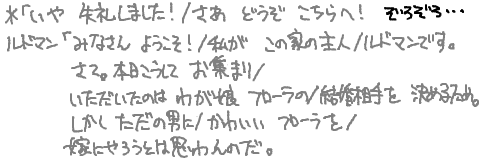 *「いや 失礼しました!/さあ どうぞ こちらへ! ぞろぞろ…
ルドマン「みなさん ようこそ!/私が この家の主人/ルドマンです。
さて。本日こうして お集まり/
いただいたのは わが娘 フローラの/結婚相手を 決めるため。
しかし ただの男に/かわいい フローラを/
嫁にやろうとは思わんのだ。